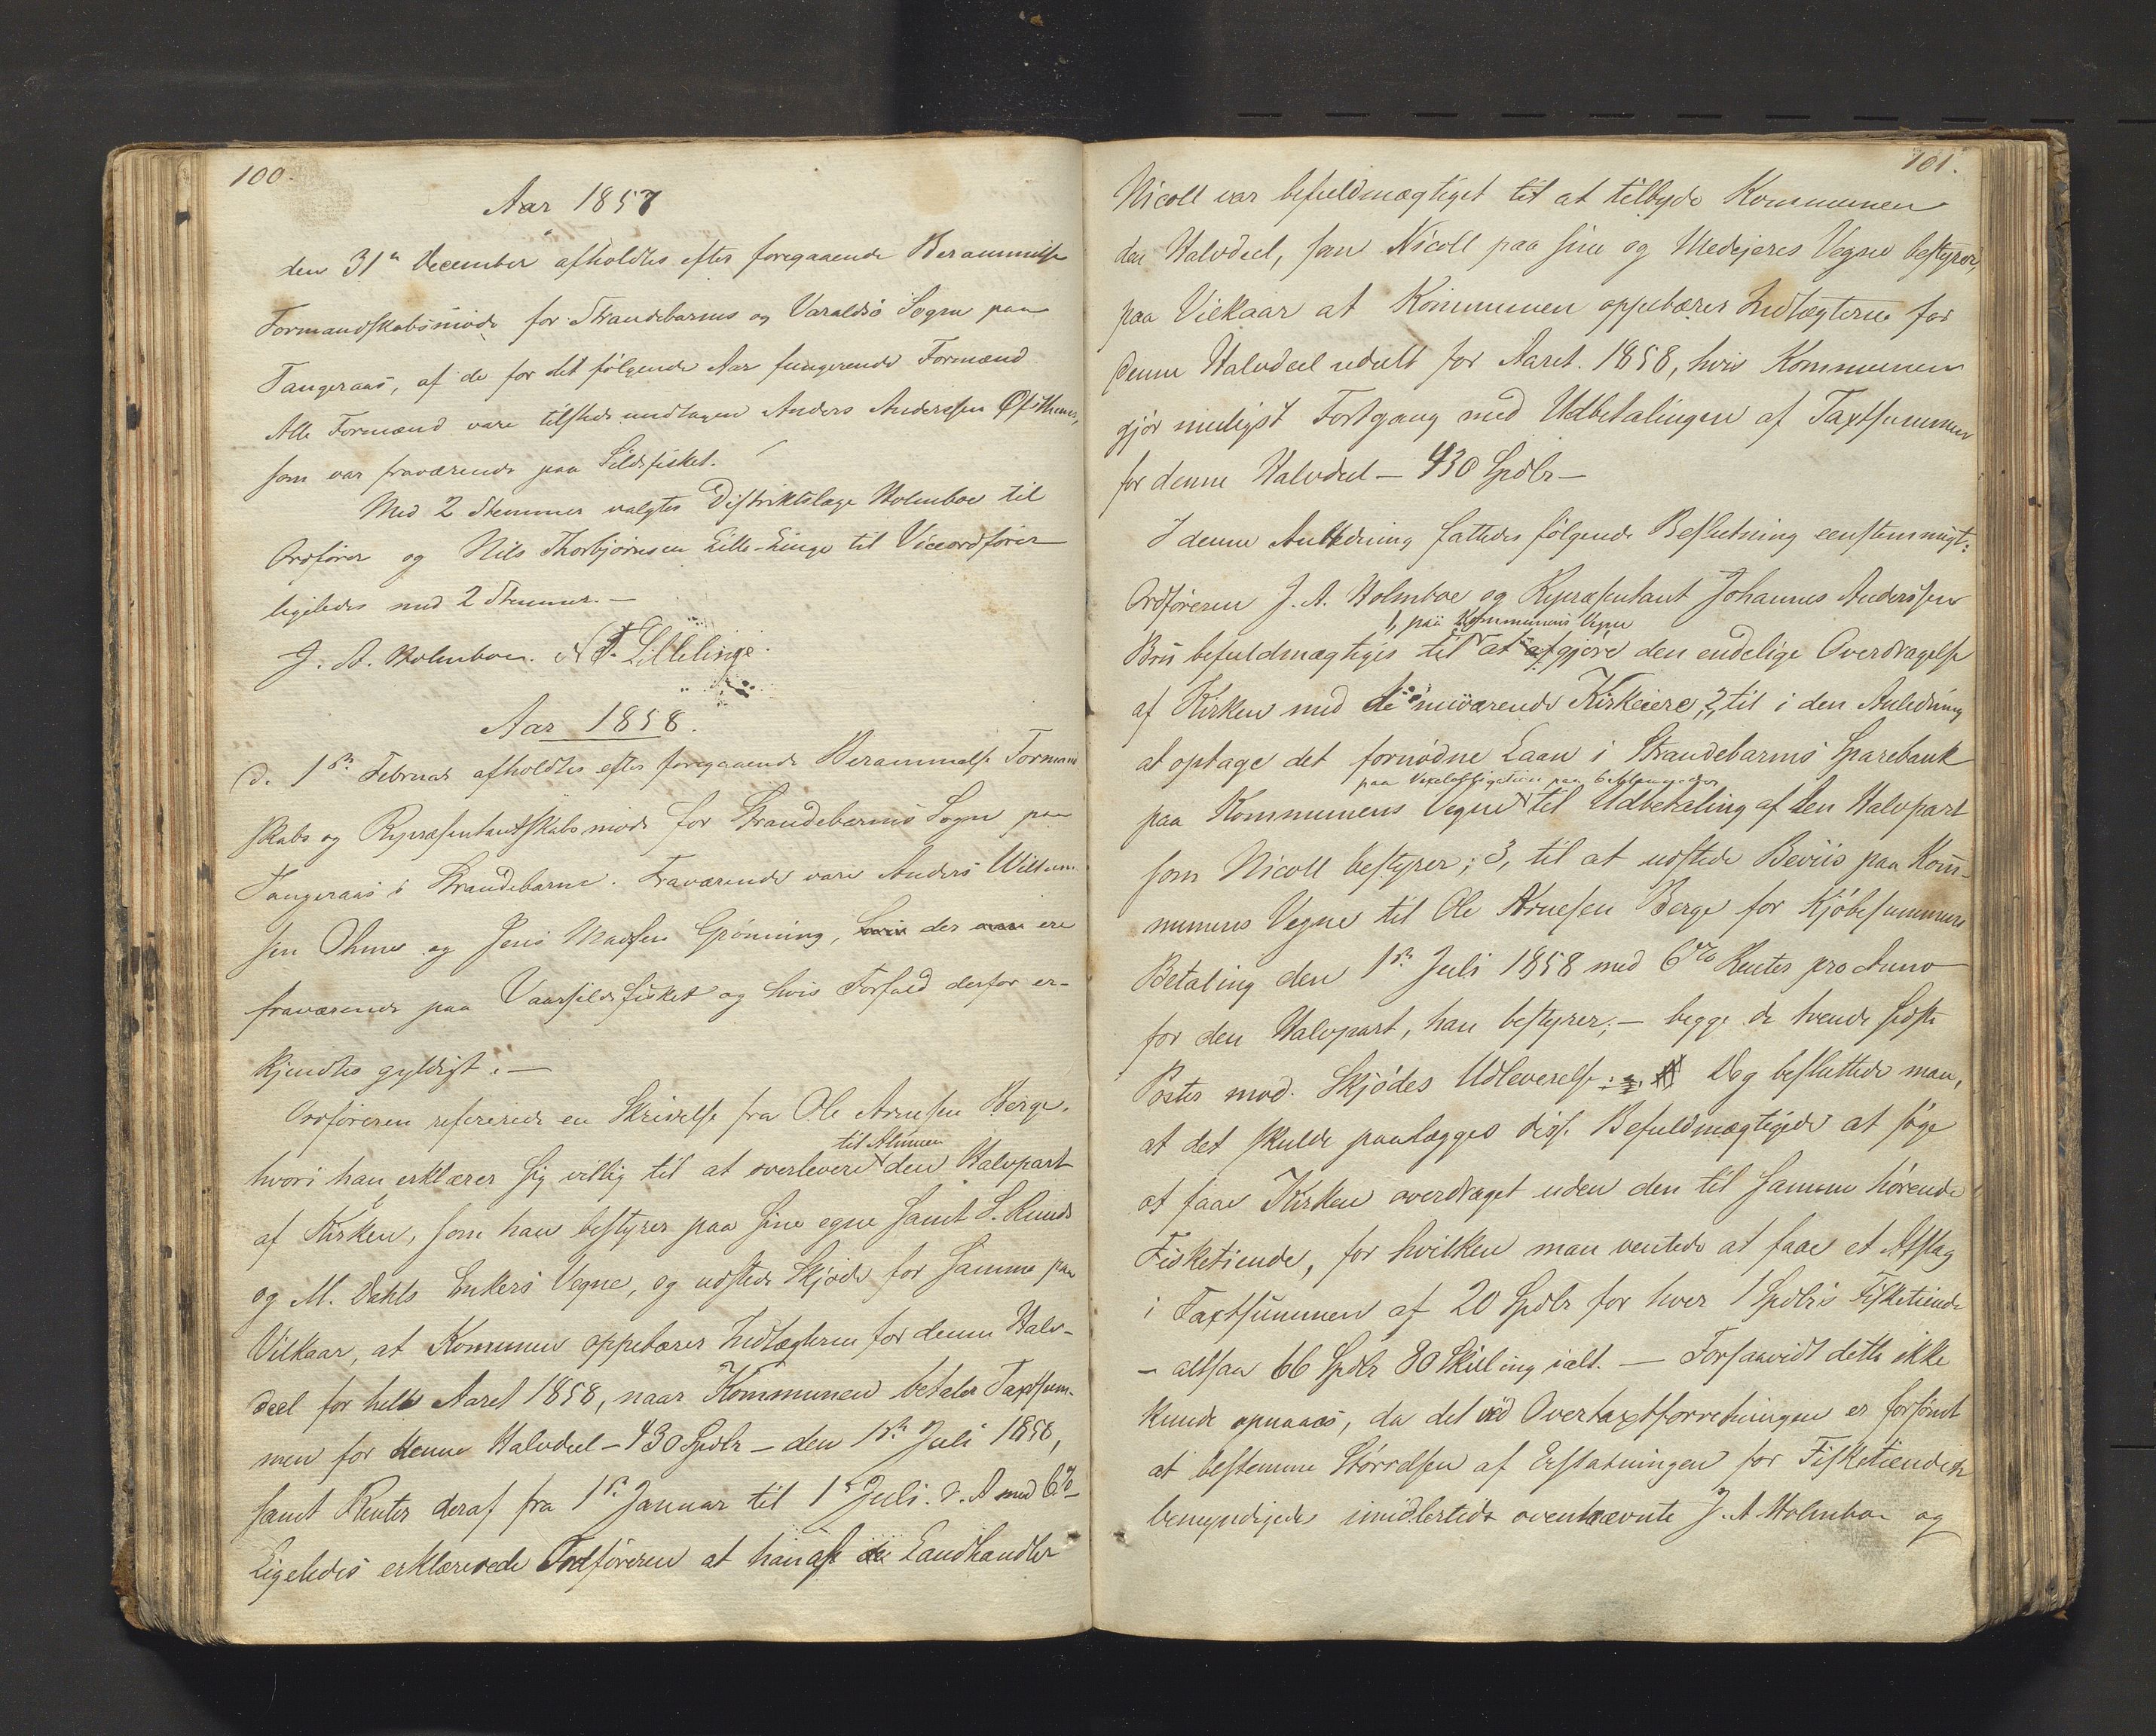 100.
Aar 1857
den 31te December afholdtes efter foregaaende Berammelse
Formandskabsmøde for Strandebarms og Varaldsø Sogne paa
Tangeraas, af de for det følgende Aar fungerende Formænd
Alle Formænd vare tilstede undtagen Anders Anderssen
som var fraværende paa Sildefisket.
Med 2 Stemmer valgtes Distriktslæge Holmboe til
Ordfører og Nils Thorbjørnsen Lille-Linge til Viceordfører
ligeledes med 2 Stemmer.—
J. A. Holmboe. N T. Lillelinge.
Aar 1858.
d. 1ste Februar afholdtes efter foregaaende Berammelse Formand
skabs og Repræsentantskabsmøde for Strandebarms Sogn paa
Tangeraas i Strandebarm. Fraværende vare Anders Willum
sen Ohme og Jens Madsen Grønning, der ere
fraværende paa Vaarsildefisket og hvis Forfald derfor er-
kjendtes gyldigt.—
Ordføreren refererede en Skrivelse fra Ole Arnesen Berge,
hvori han erklærer sig villig til at overlevere til Almuen den Halvpart
af Kirken, som han bestyrer paa sine egne samt S. Runds
og M. Dahls Enkers Vegne, og udstede Skjøde for samme paa
Vilkaar, at Kommunen oppebærer Indtægterne for denne Halv-
deel for hele Aaret 1858, naar Kommunen betaler Taxtsum-
men for denne Halvdeel – 430 Spdlr – den 1ste Juli 1858,
samt Renter deraf fra 1ste Januar til 1ste Juli d. A med 6%–
Ligeledes erklærede Ordføreren at han af Landhandler
101.
Nicoll var befuldmægtiget til at tilbyde Kommunen
den Halvdeel, som Nicoll paa sine og Medejeres Vegne bestyrer,
paa Vilkaar at Kommunen oppebærer Indtægterne for
denne Halvdeel udelt for Aaret 1858, hvis Kommunen
gjør muligst Fortgang med Udbetalingen af Taxtsummen
for denne Halvdeel – 430 Spdlr –
I denne Anledning fattedes følgende Beslutning eenstemmigt:
Ordføreren J. A. Holmboe og Repræsentant Johannes Anderssen
Brii befuldmægtiges til 1, paa Kommunens Vegne at afgjøre den endelige Overdragelse
af Kirken med de nuværende Kirkeiere, 2, til i den Anledning
at optage det fornødne Laan i Strandebarms Sparebank
paa Kommunens Vegne paa Vexelobligation paa 6 til Udbetaling af den Halvpart
som Nicoll bestyrer; 3, til at udstede Beviis paa Kom-
munens Vegne til Ole Arnesen Berge for Kjøbesummens
Betaling den 1ste Juli 1858 med 6% Renter pro Anno
for den Halvpart, han bestyrer;— begge de tvende sidste
Poster mod Skjødes Udleverelse:— Dog besluttede man,
at det skulde paalægges disse Befuldmægtigede at søge
at faae Kirken overdraget uden den til samme hørende
Fisketiende, for hvilken man ventede at faae et Afslag
i Taxtsummen af 20 Spdlr for hver 1 Spdlr i Fisketiende
– altsaa 66 Spdlr 80 Skilling ialt. — Forsaavidt dette ikke
kunde opnaaes, da det ved Overtaxtforretningen er forsømt
at bestemme Størrelsen af Erstatningen for Fisketienden
bemyndigedes imidlertid ovennævnte J. A. Holmboe og